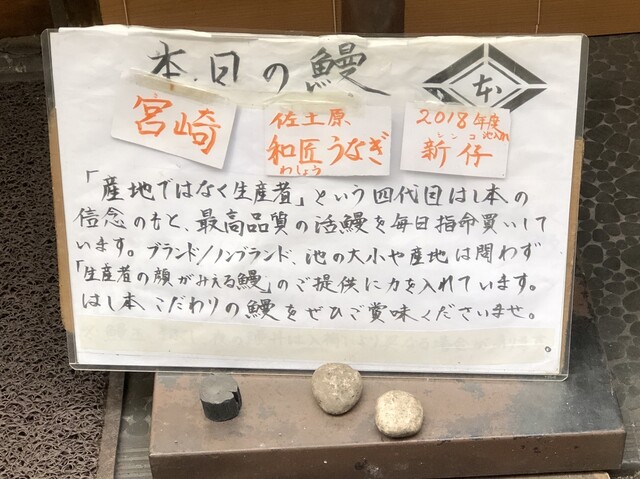 本日の鰻
本
宮崎
佐土原
和匠うなぎ
わしょう
2018年度
シンコ池入れ
新仔
「産地ではなく生産者」という四代目はし本の
信念のもと、最高品質の活鰻を毎日指命買いして
います。ブランド/ノンブランド、池の大小や産地は問わず
「生産者の顔がみえる鰻」のご提供に力を入れています。
はし本こだわりの鰻をぜひご賞味くださいませ。